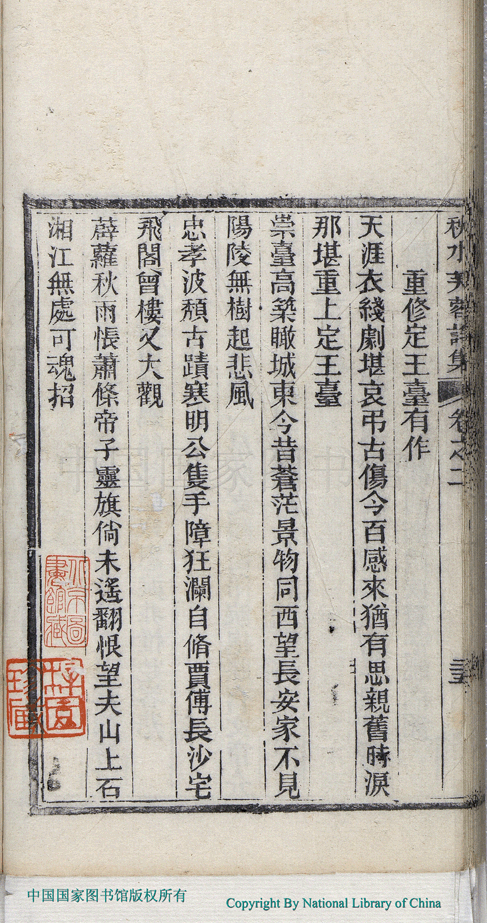 秋水芙蓉詩集 卷之二
重修定王臺有作
天涯衣綫劇堪哀弔古傷今百感來猶有思親舊時淚
那堪重上定王臺
崇臺高築瞰城東今昔蒼茫景物同西望長安家不見
陽陵無樹起悲風
忠孝波頹古蹟寒明公隻手障狂瀾自脩賈傅長沙宅
飛閣曾樓又大觀
薜蘿秋雨悵蕭條帝子靈旗倘未遙翻恨望夫山上石
湘江無處可魂招
中国国家图书馆版权所有
Copyright By National Library of China